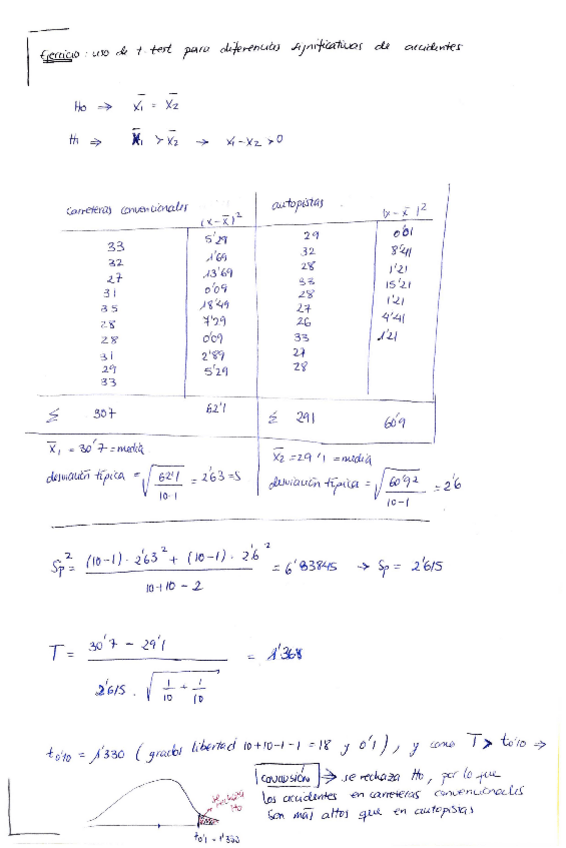 Ejercicio: uso de t-test para diferencias significativas de accidentes
Ho ⇒ x̄₁ = x̄₂
H₁ ⇒ x̄₁ > x̄₂ → x₁-x₂ > 0
carreteras convencionales (x-x̄)² autopistas (x-x̄)²
33 5'29 29 0'01
32 1'69 32 8'41
27 13'69 28 1'21
31 0'09 33 15'21
35 18'49 28 1'21
28 7'29 27 4'41
28 0'09 26 1'21
31 2'89 33
29 5'29 27
33 28
Σ 307 62'1 Σ 291 60'9
x̄₁ = 30'7 = media x̄₂ = 29'1 = media
desviación típica = √(62'1 / 10-1) = 2'63 = S desviación típica = √(60'92 / 10-1) = 2'6
Sp² = ((10-1) · 2'63² + (10-1) · 2'6²) / (10+10-2) = 6'83845 → Sp = 2'615
T = (30'7 - 29'1) / (2'615 · √(1/10 + 1/10)) = 1'368
t₀'₁₀ = 1'330 (grados libertad 10+10-1-1 = 18 y 0'1), y como T > t₀'₁₀ ⇒
CONCLUSIÓN → se rechaza Ho, por lo que
los accidentes en carreteras convencionales
son más altos que en autopistas
Ho
t₀'₁ = 1'333